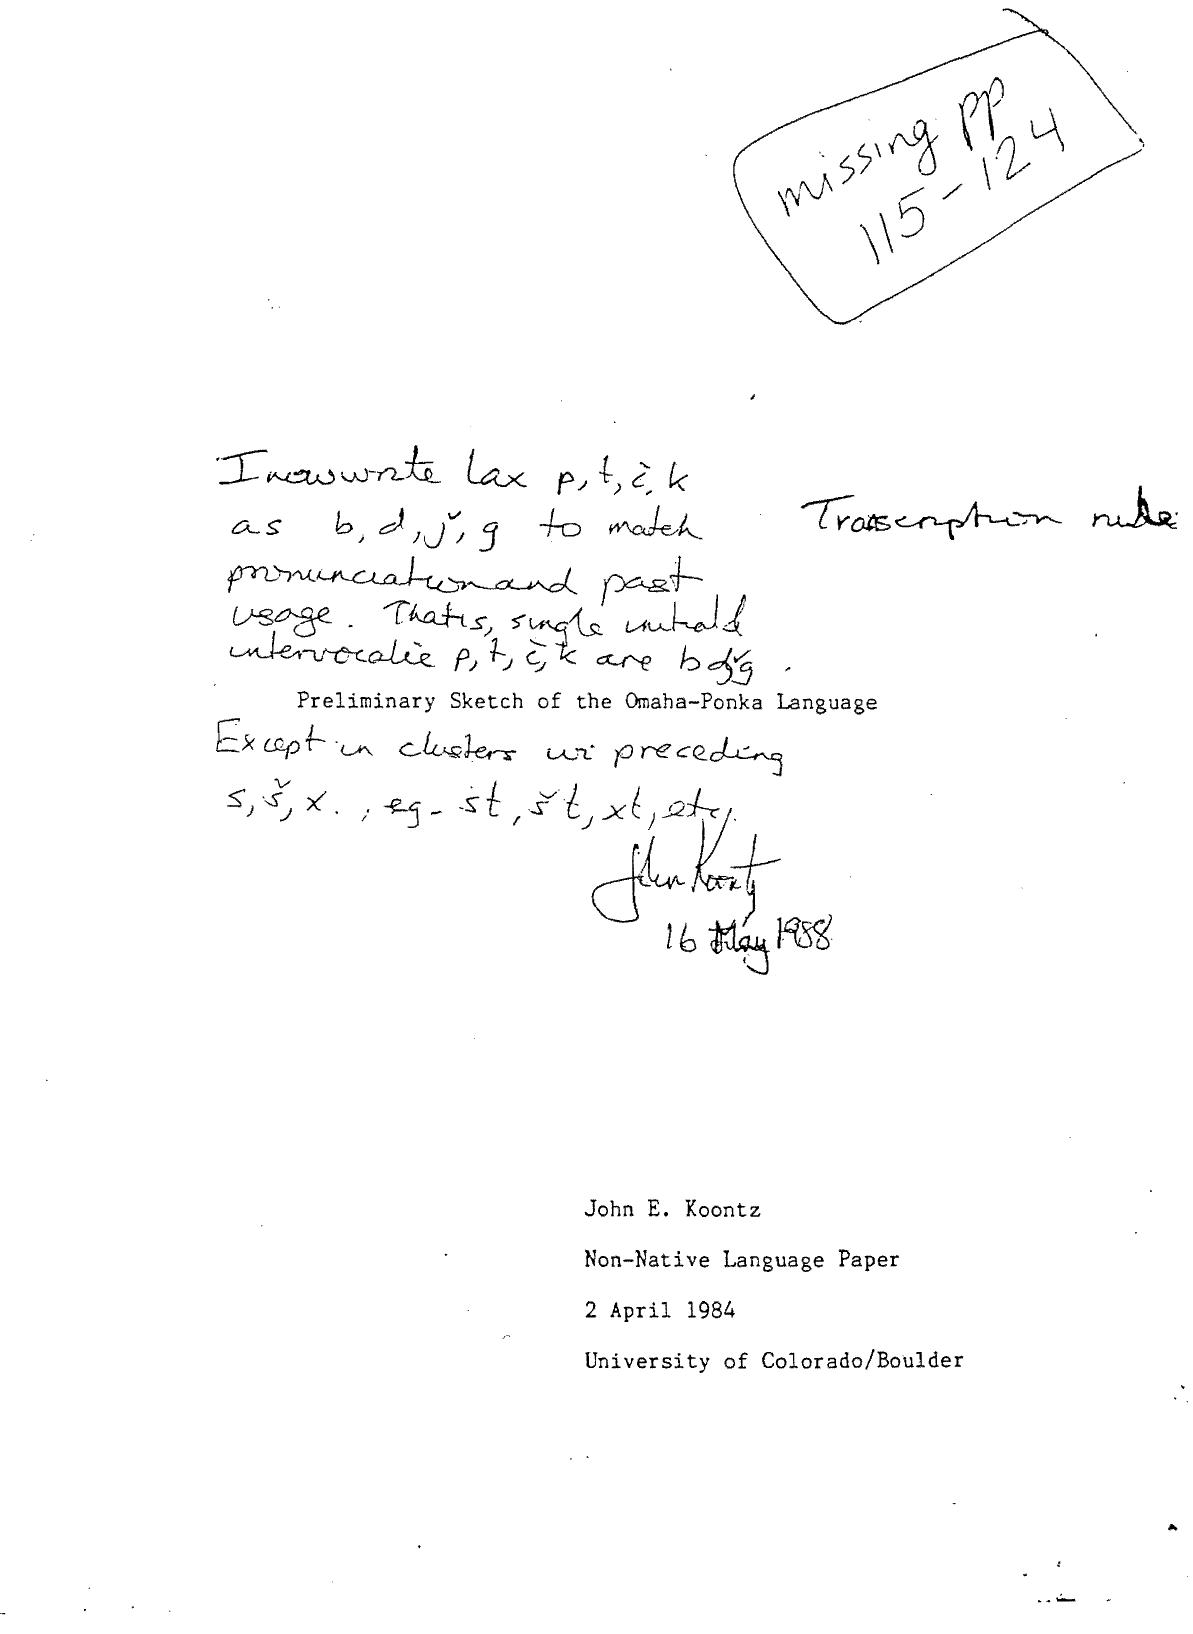 missing pp
115-124
I now write lax p, t, č, k
as b, d, ǰ, g to match
Transcription rule
pronunciation and past
usage. That is, single initial &
intervocalic p, t, č, k are b d ǰ g.
Preliminary Sketch of the Omaha-Ponka Language
Except in clusters w/ preceding
s, š, x., eg- st, št, xt, etc,
John Koontz
16 May 1988
John E. Koontz
Non-Native Language Paper
2 April 1984
University of Colorado/Boulder